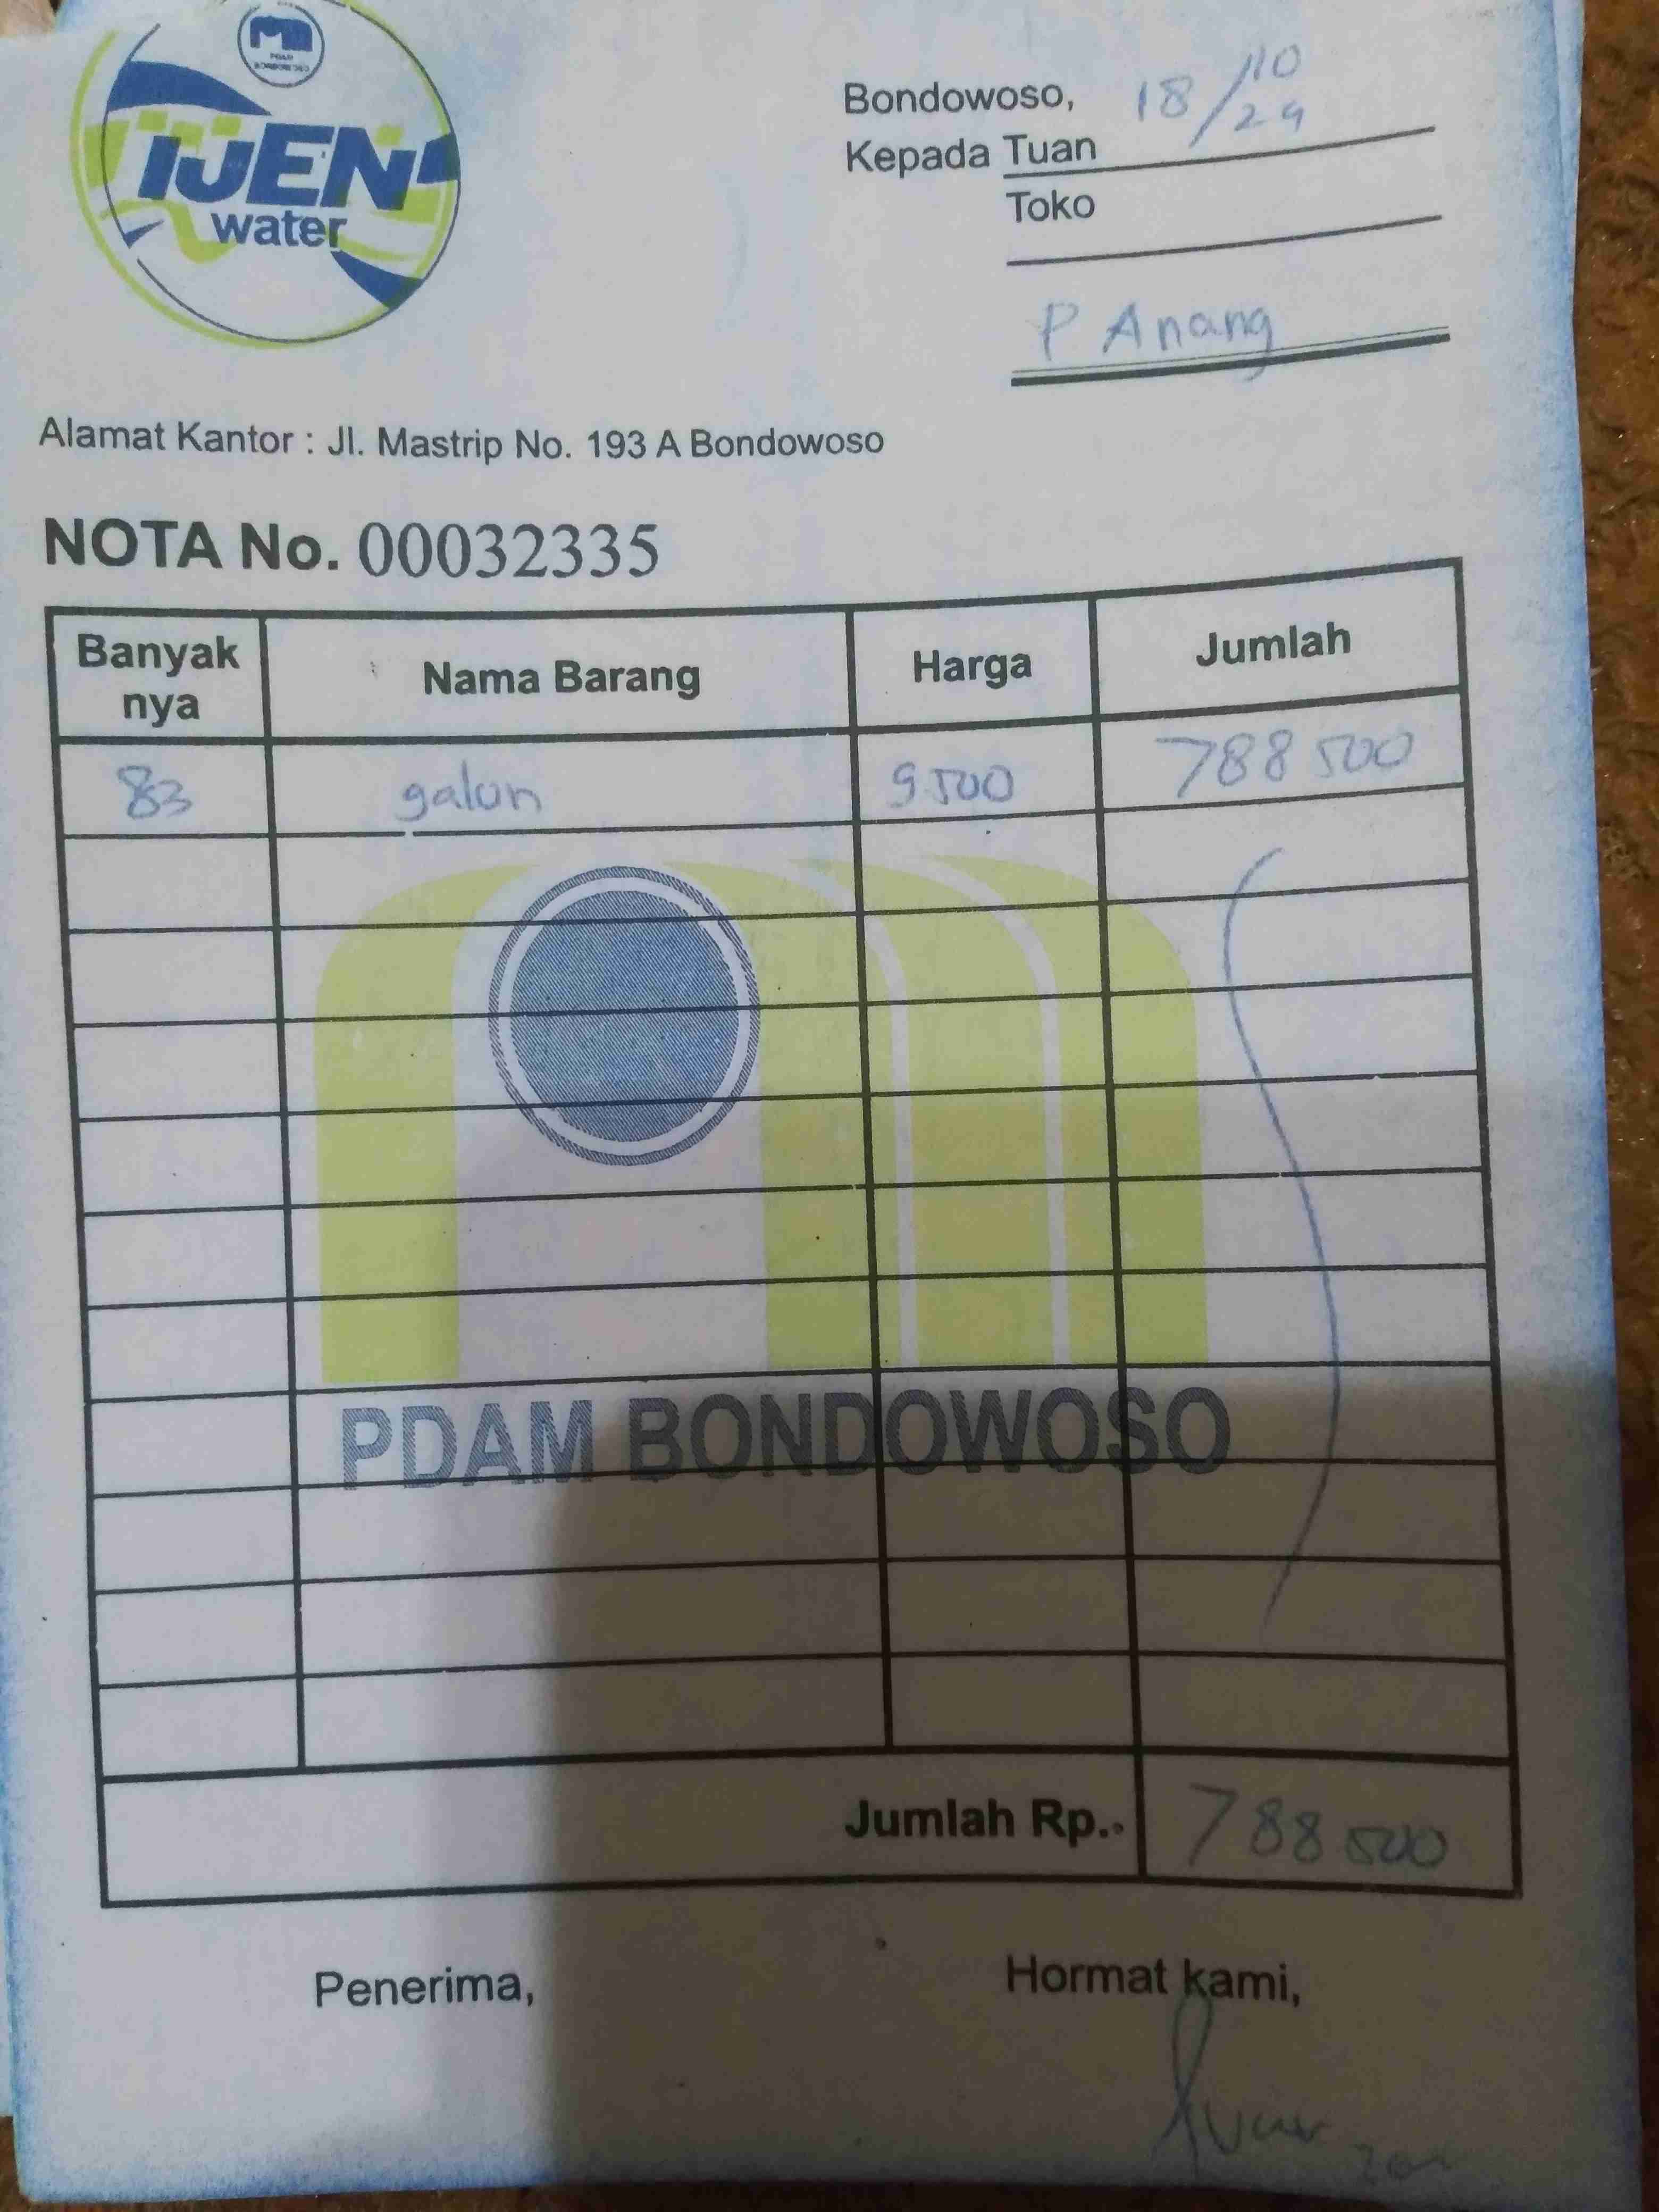 PDAM
BONDOWOSO
IJEN
water
Bondowoso, 18/10 24
Kepada Tuan
Toko
P Anang
Alamat Kantor : Jl. Mastrip No. 193 A Bondowoso
NOTA No. 00032335
Banyak nya Nama Barang Harga Jumlah
83 galon 9500 788500
PDAM BONDOWOSO
Jumlah Rp. 788500
Penerima, Hormat kami,